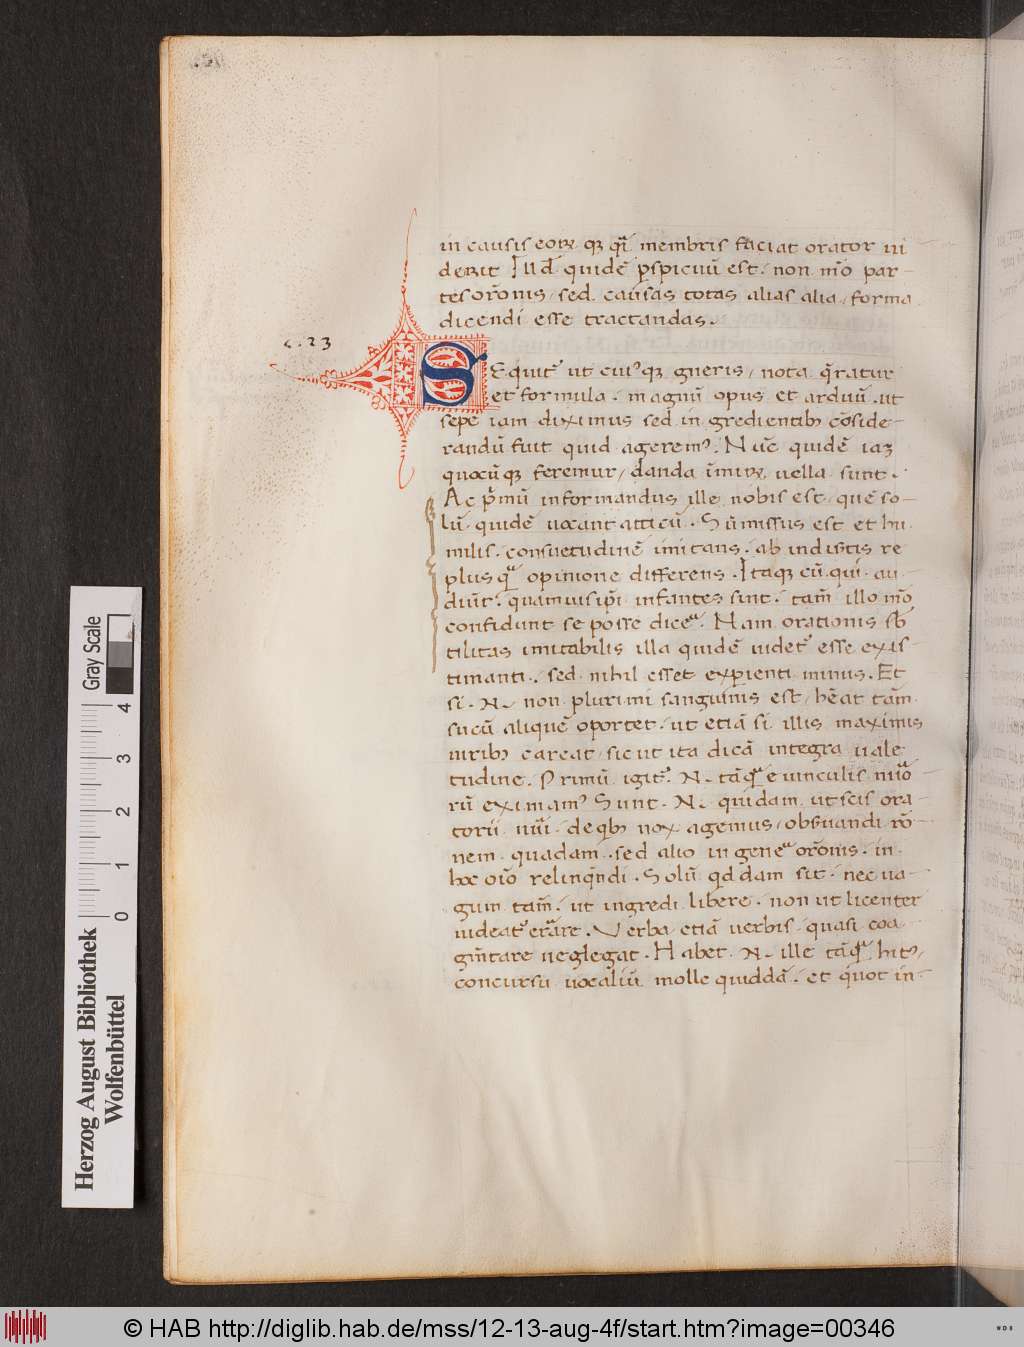 in causis eoꝝ qꝫ qͣ membris faciat orator ui
derit Illd̄ quidē ꝑspicuū est. non mō par-
tes orōnis, sed. causas totas alias alia, forma
dicendi esse tractandas.
c. 23
SEquit᷑ ut cuiꝰqꝫ gn̄eris, nota qͣratur
et formula. magnū opus et arduū. ut
sepe iam diximus sed ingredientibꝫ cōside-
randū fuit quid ageremꝰ. Nūc quidē iaꝫ
quocūqꝫ feremur, danda nīmiꝝ uella sunt.
Ac pͥmū informandus ille nobis est, quē so-
lū. quidē uocant atticū. Sūmissus est et hu
milis. consuetudinē imitans. ab indisertis re
plus qͣ opinione differens. Itaqꝫ cū. qui. au-
diūt. quamuis ip̄i infantes sint. tam̄ illo mō
confidunt se posse dicē. Nam orationis sb̄
tilitas imitabilis illa quidē uidet᷑ esse exis-
timanti. sed nihil esset experienti minus. Et
si. N. non plurimi sanguinis est, hēat tam̄
sucū aliquē oportet. ut etiā si illis maximis
uiribꝫ careat, sic ut ita dicā integra uale
tudine. Primū igit᷑. N. tāqͣ e uinculis nūo
rū eximamꝰ Sunt. N. quidam ut scis ora-
torii nūi. de qͥbꝫ mox agemus, obseruandi rō-
nem quadam. sed alio in genere orōnis. in.
hoc oīo relinqn̄di. Solū qddam sit. nec ua-
gum tam̄. ut ingredi libere. non ut licenter
uideat᷑ errare. Verba etiā uerbis quasi coa-
gm̄tare neglegat. Habet. N. ille tāqͣ hitꝰ,
concursu uocaliū molle quiddā. et quot in-
Gray Scale
0 1 2 3 4
Herzog August Bibliothek
Wolfenbüttel
© HAB http://diglib.hab.de/mss/12-13-aug-4f/start.htm?image=00346